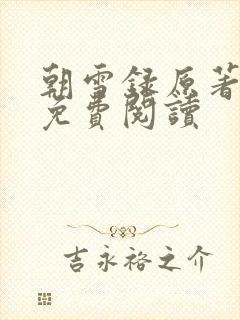 朝雪録原著
免費閱讀
吉永裕之介